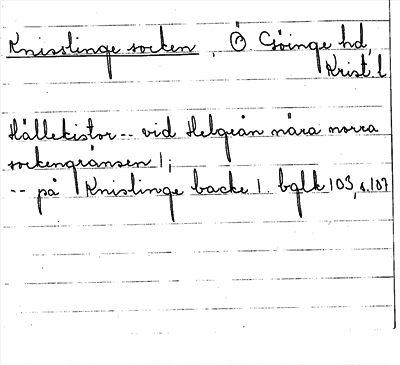 Knisslinge socken, Ö Göinge hd,
Krist. l
Hällekistor -- vid Helgeån nära norra
sockengränsen 1;
-- på Knislinge backe 1. bglk 103, s. 107